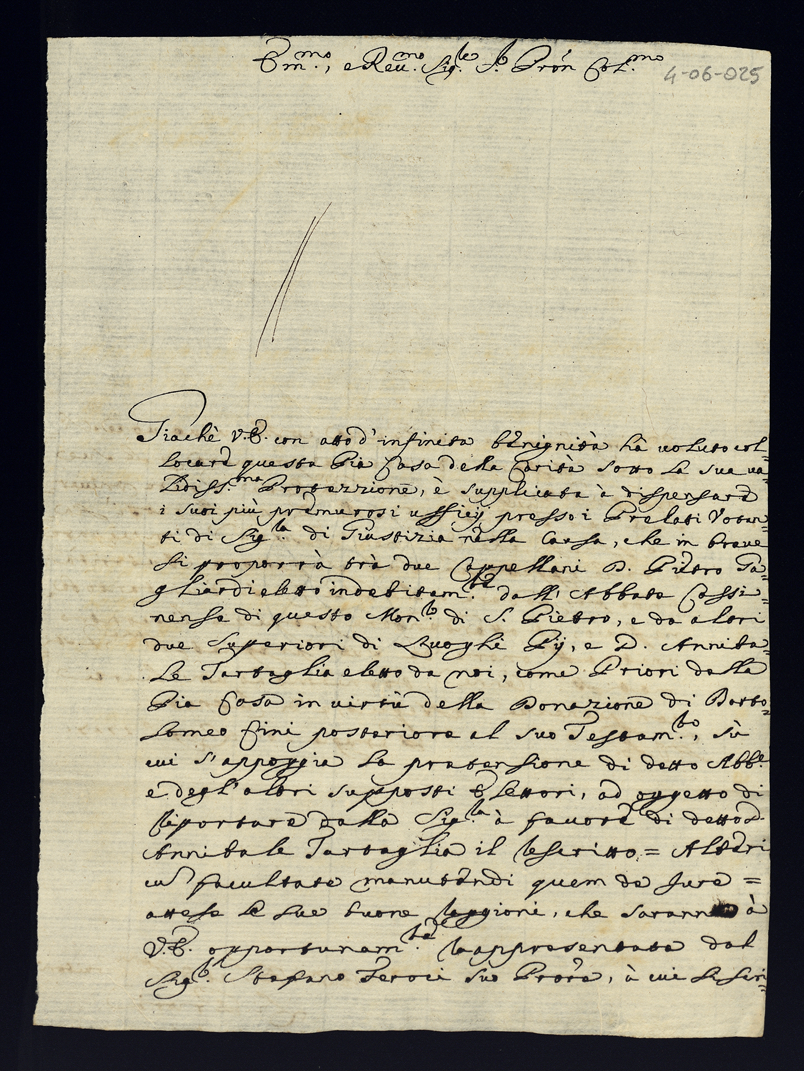 Em.mo, e Reu.mo Sig.re S.r Prõn Col.mo
4-06-025
Giache V.E. con atto d'infinita benignità hà uoluto col=
locare questa Pia Casa della Carità sotto la sua va=
lidiss.ma Protezzione, è supplicata à dispensare
i suoi più premurosi ufficij presso i Prelati Votan=
ti di Sig.ra di Giustizia nella Causa, che in breue
si proporrà trà due Cappellani D. Pietro Ta=
gliardi eletto indebitam.te dall'Abbate Cassi=
nense di questo Mon.ro di S. Pietro, e da altri
due Superiori di Luoghi Pij, e D. Anniba=
le Tartaglia eletto da noi, come Priori della
Pia Casa in virtù della Donazione di Barto=
lomeo Fini posteriore al suo Testam.to, sù
cui s'appoggia la pretensione di detto Abb.e
e degl'altri supposti Elettori, ad oggetto di
riportare dalla Sig.ra à fauore di detto D.
Annibale Tartaglia il rescritto = Alteri
cũ facultate manutendi quem de Jure =
attese le sue buone raggioni, che saranno à
V.E. opportunam.te rappresentate dal
Sig.r Stefano Feroci suo Prore, à cui si seri=